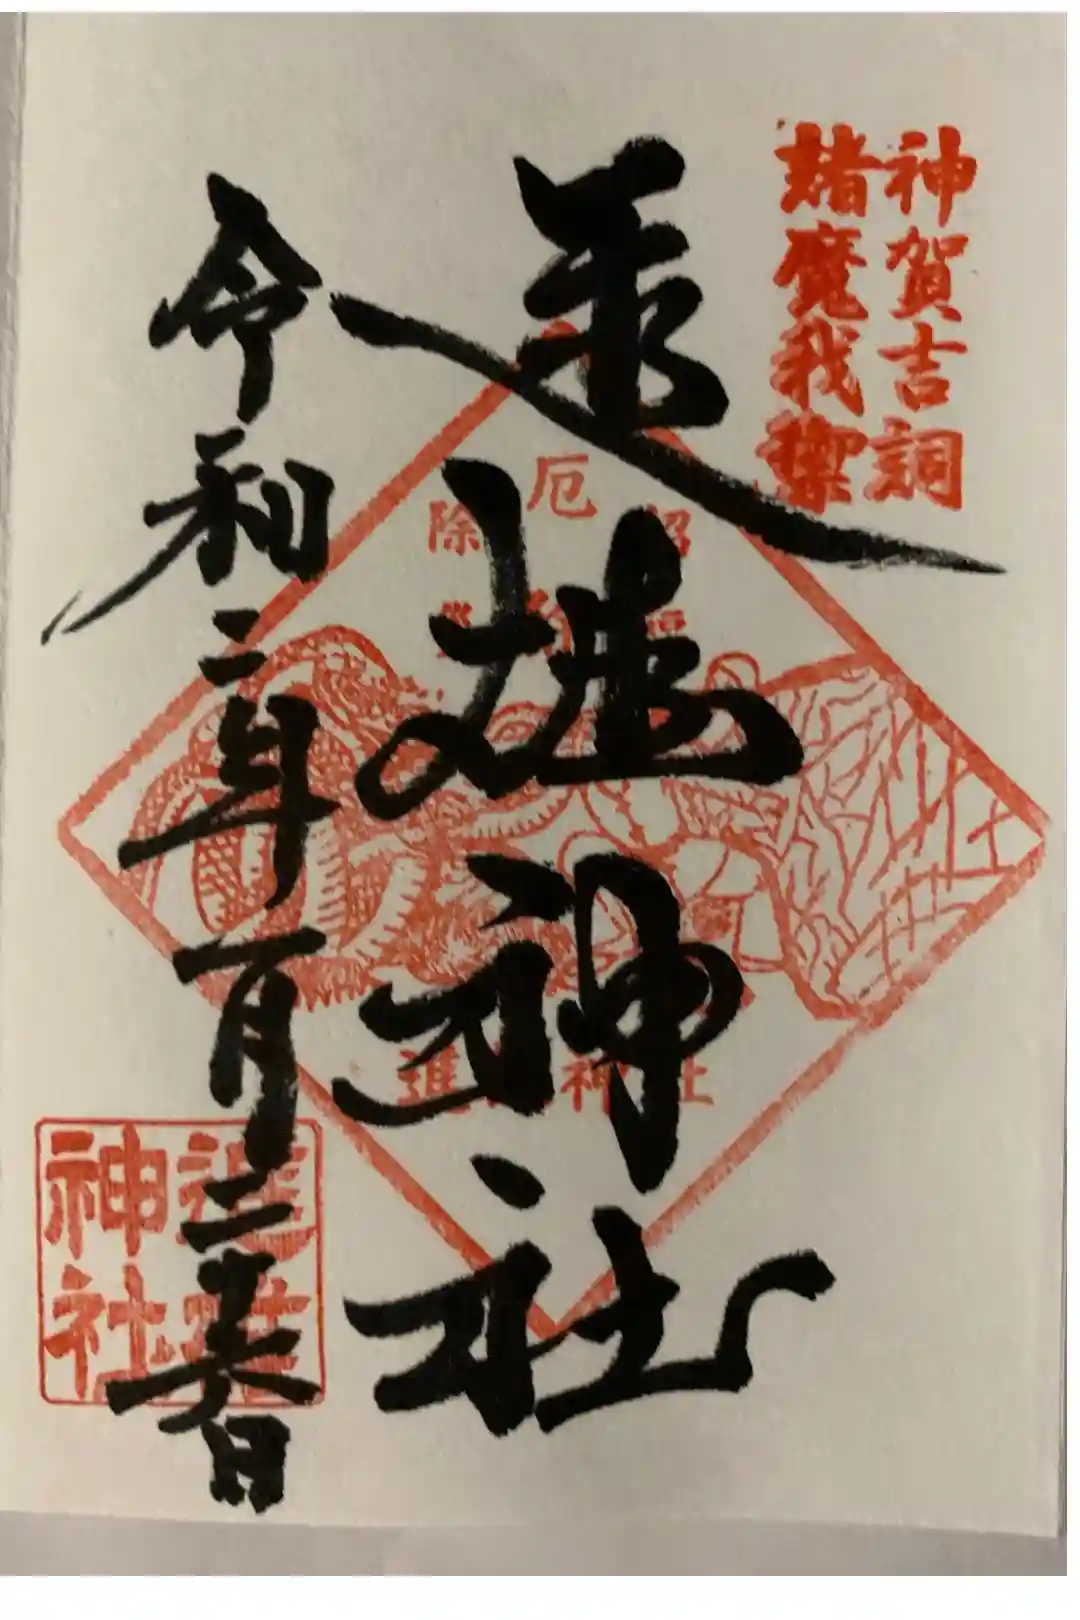 神賀吉詞
諸魔我禦
進雄神社
厄
除
進雄神社
進雄
神社
令和二年一月二
日